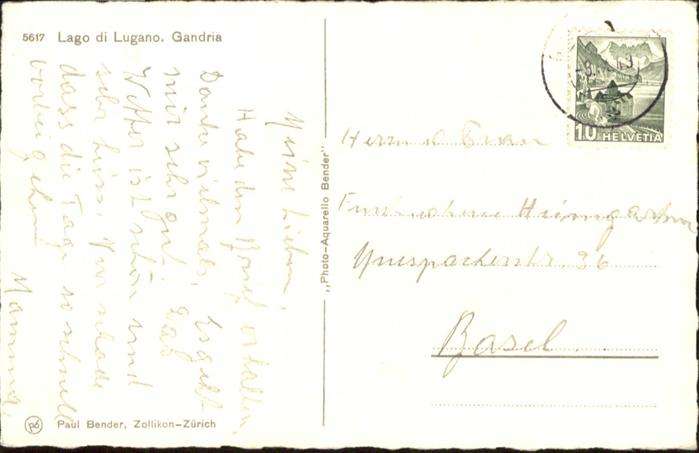 5617 Lago di Lugano. Gandria
Meine Lieben,
Habe den Brief erhalten,
Danke vielmals, Es geht
mir sehr gut. Das
Wetter ist schön und
sehr heiss. Nur schade
dass die Tage so schnell
vorbei gehen
Mamma.
Paul Bender, Zollikon-Zürich
„Photo-Aquarello Bender"
10 HELVETIA
Herrn u Frau
36
Basel